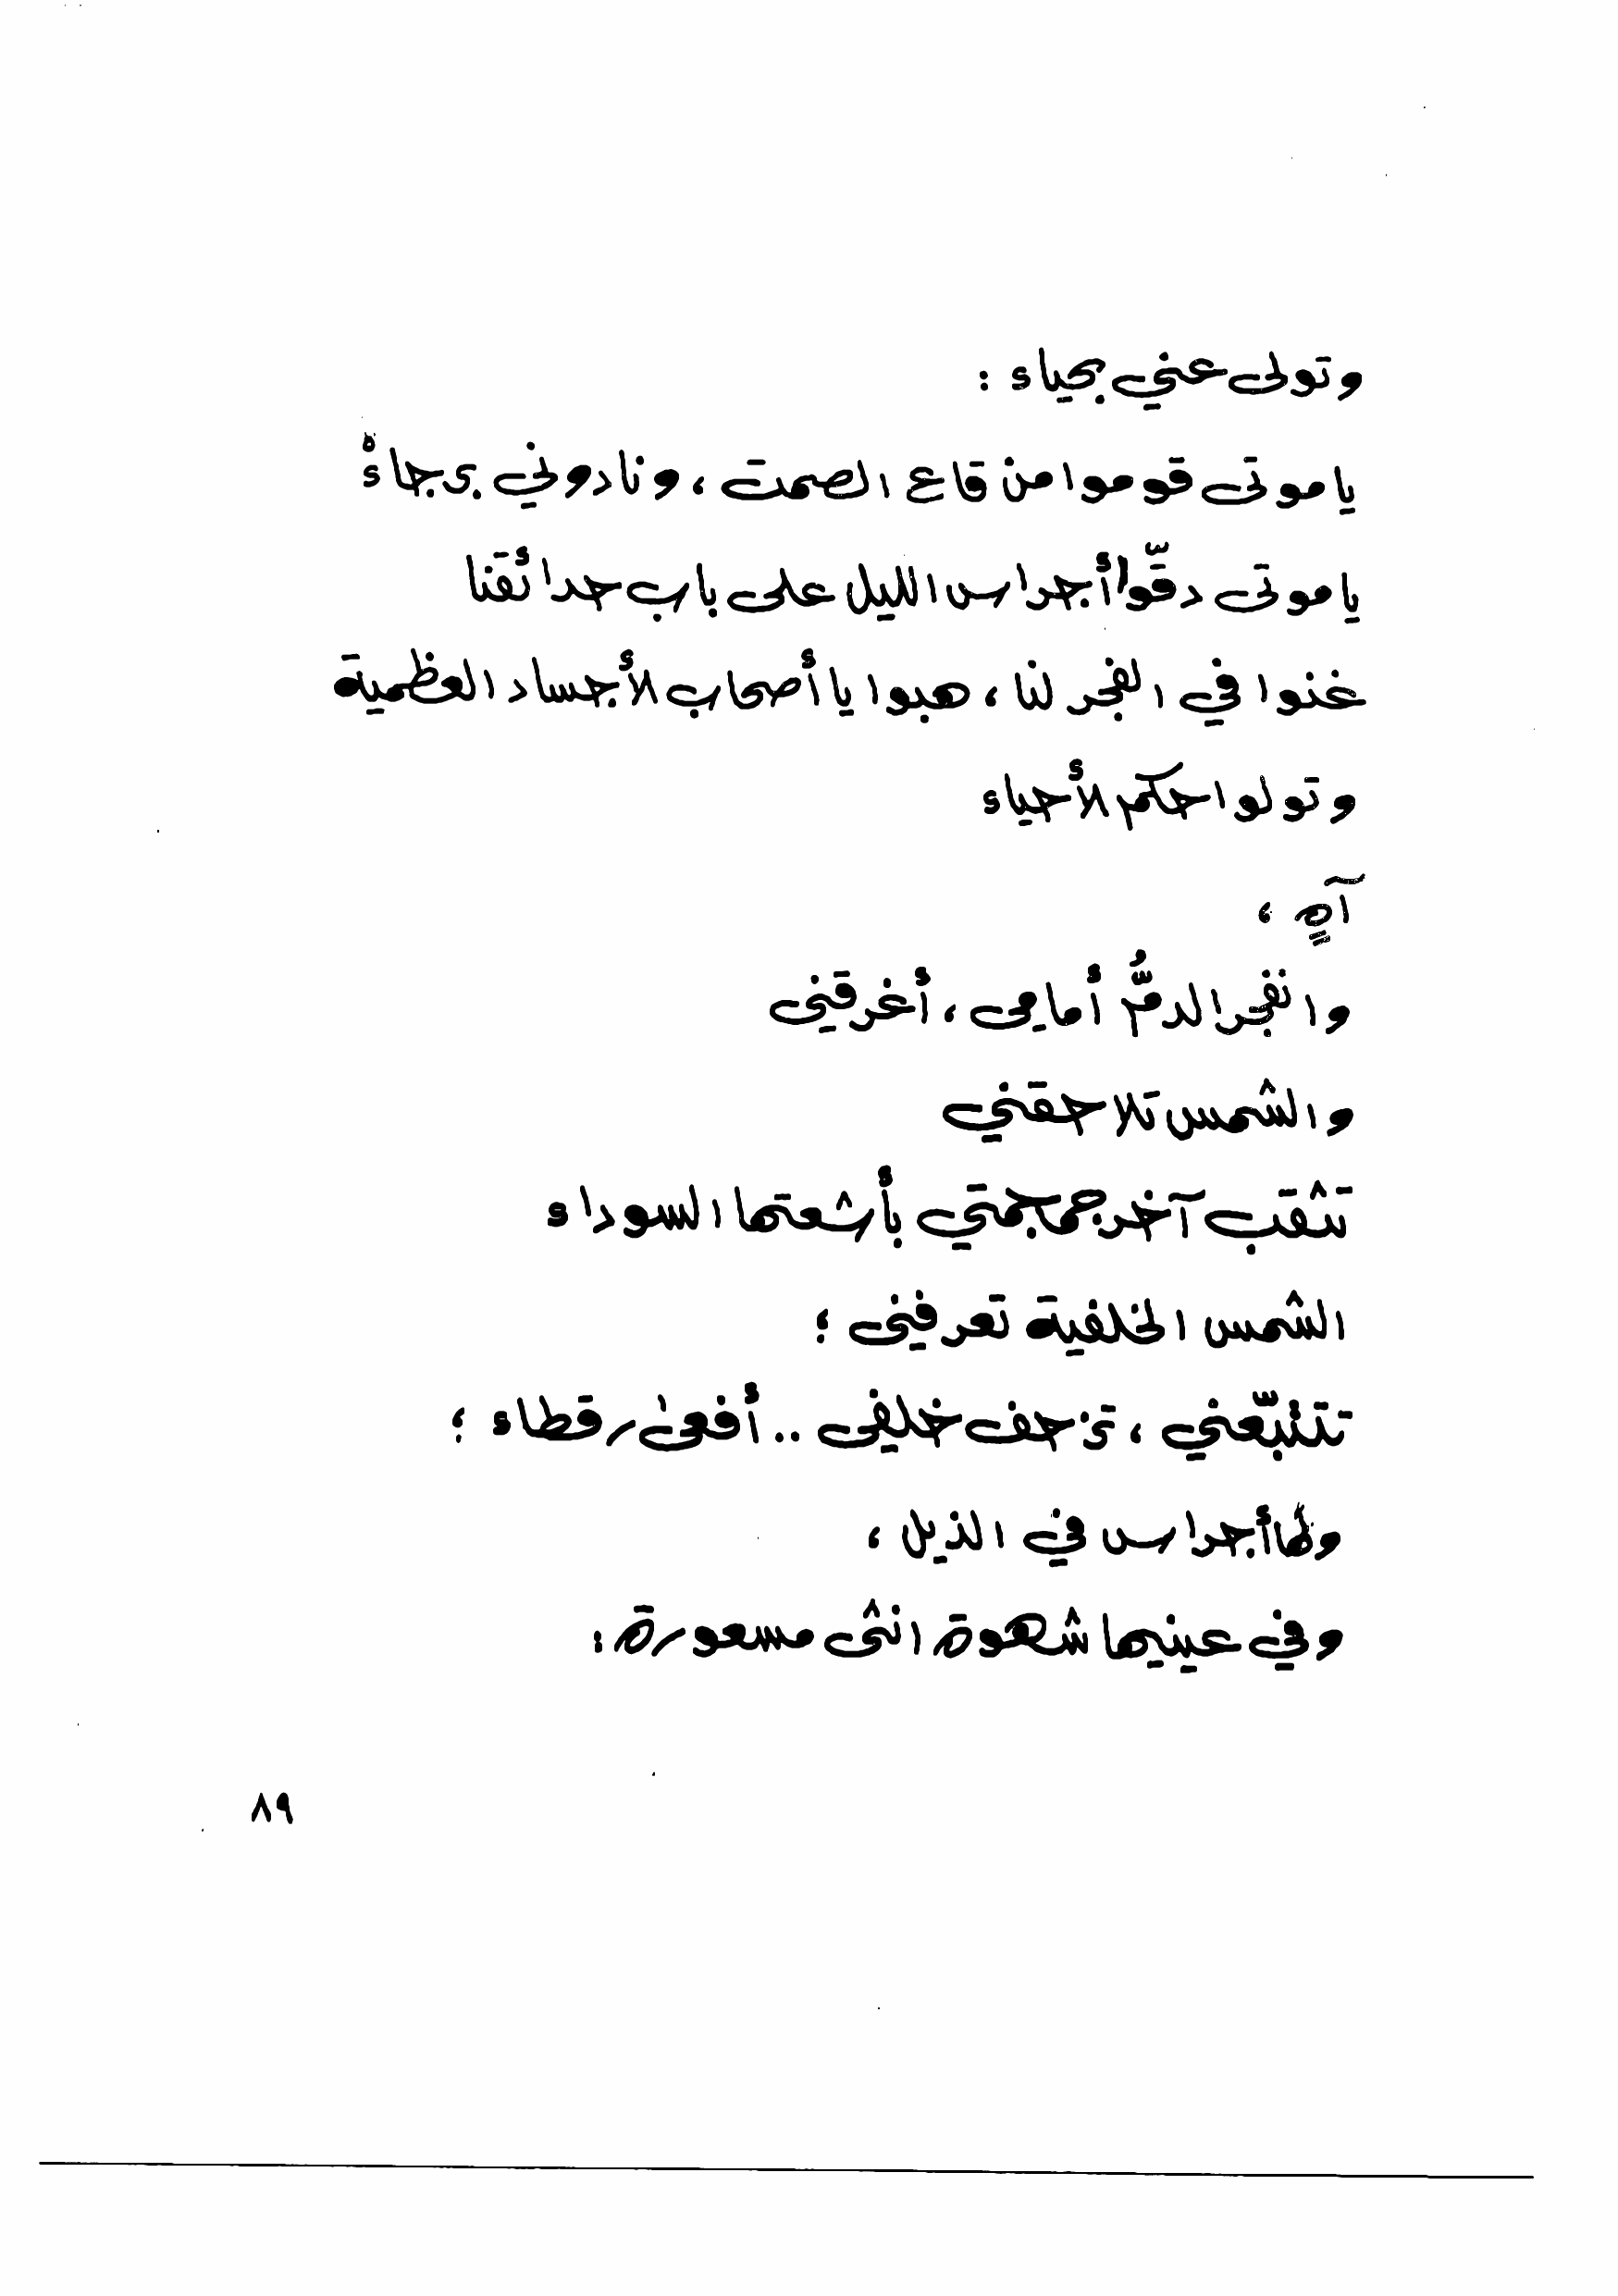 وتولى عني بحياء :
يا موتى قوموا من قاع الصمت ، ونادوني برجاءْ
يا موتى دقّوا أجراس الليل على باب حدائقنا
غنوا في الفجر لنا ، هبوا يا أصحاب الأجساد العظمية
وتولوا حكم الأحياء
آهٍ ،
وانفجر الدمُّ أمامي ، أغرقني
والشمس تلاحقني
تثقب آخر جمجمتي بأشعتها السوداء
الشمس الخلفية تعرفني ؛
تتتبّعني ، تزحف خلفي .. أفعى رقطاء ؛
ولها أجراس في الذيل ،
وفي عينيها شهوة انثى مسعورة :
٨٩